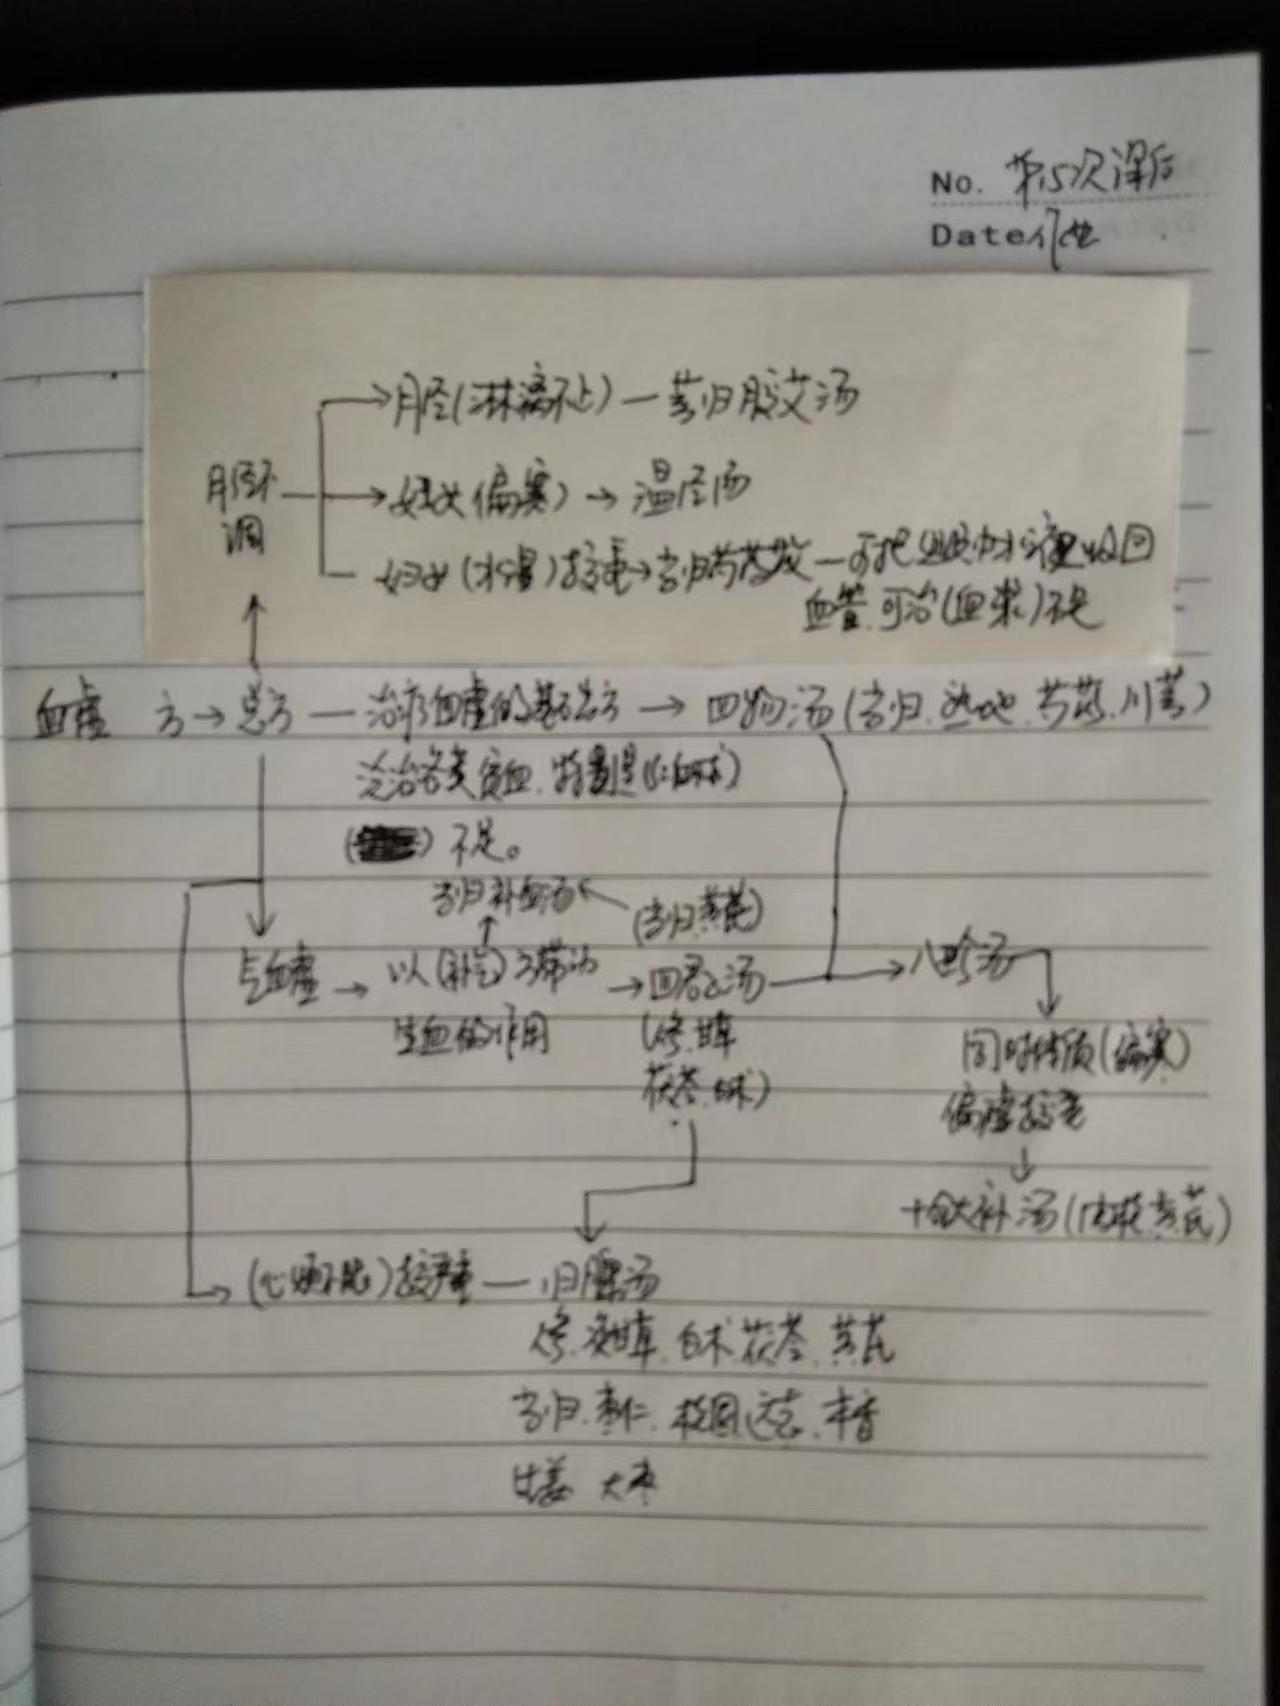 No. 第15次课后
Date 作业
月经(淋漓不止) — 芎归胶艾汤
月经不调
妇女(偏寒) → 温经汤
妇女(水湿)较重→当归芍药散 — 可把 水液 收回
血管.可治(血球)不足
血虚 方→总方 — 治疗血虚的基础方 → 四物汤(当归.熟地.芍药.川芎)
泛治各类贫血.特别是(红血球)
不足。
当归补血汤
(当归.黄芪)
气血虚 → 以(补气)而带动 → 四君子汤 → 八珍汤
生血的作用
(人参.甘草
茯苓.白术)
同时体质(偏寒)
偏虚较重
↓
十全大补汤(肉桂.黄芪)
(心烦不眠)较严重 — 归脾汤
人参.炙甘草.白术.茯苓.黄芪
当归.枣仁.桂圆.远志.木香
生姜 大枣